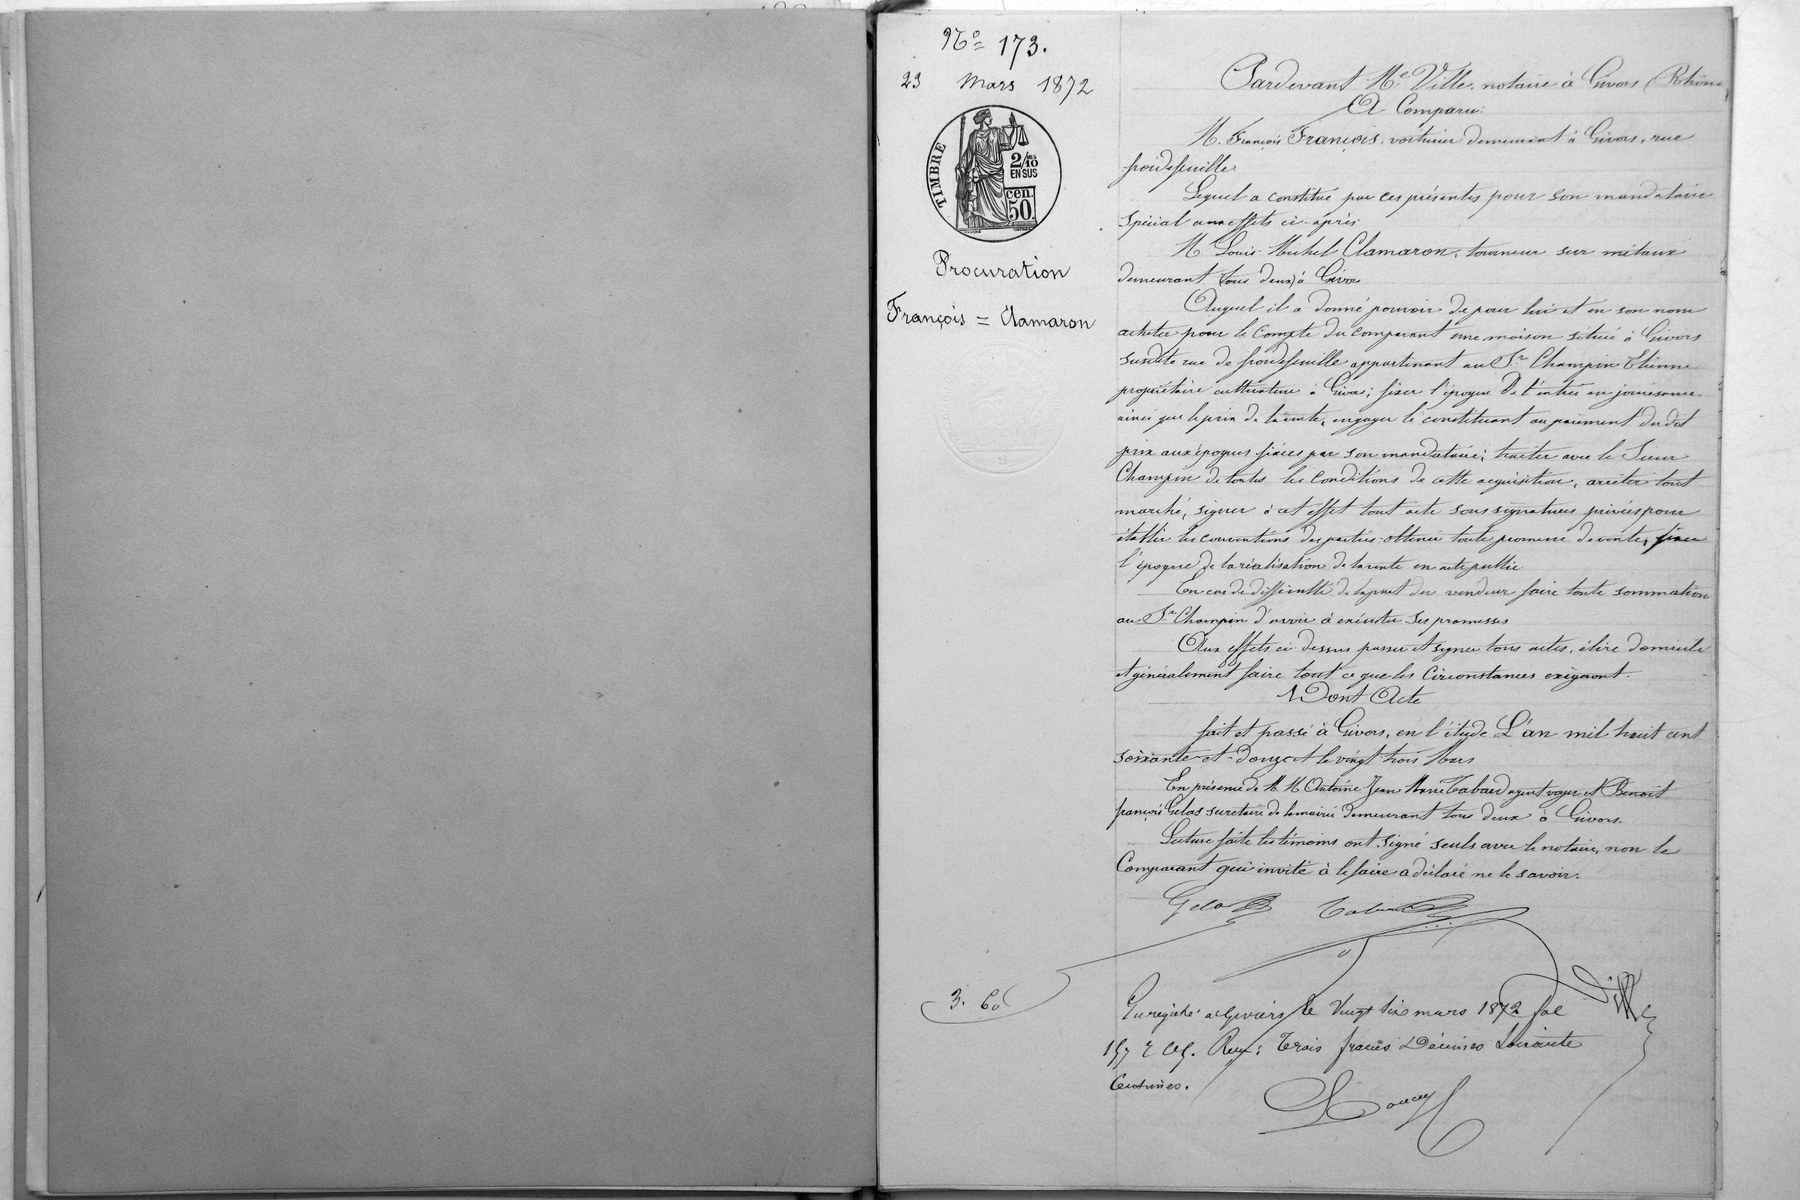 No 173.
23 Mars 1872
TIMBRE
2/10
EN SUS
cen.
50.
Procuration
François = Clamaron
Pardevant Me Ville, notaire à Givors (Rhône
A Comparu:
M. François François, voiturier demeurant à Givors, rue
froidefeuille.
Lequel a constitué par ces présentes pour son mandataire
spécial aux effets ci-après
M. Louis Michel Clamaron, tourneur sur métaux
demeurant tous deux à Givors
Auquel il a donné pouvoir de pour lui et en son nom
acheter pour le compte du comparant une maison située à Givors
susdite rue de froidefeuille appartenant au Sr Champin Etienne
propriétaire cultivateur à Givors; fixer l'époque de l'entrée en jouissance
ainsi que le prix de la vente, engager le constituant au paiement dudit
prix aux époques fixées par son mandataire; traiter avec le Sieur
Champin de toutes les conditions de cette acquisition, arrêter tout
marché, signer à cet effet tout acte sous signatures privées pour
établir les conventions des parties obtenir toute promesse de vente, fixer
l'époque de la réalisation de la vente en acte public
En cas de difficulté de la part du vendeur faire toute sommation
au Sr Champin d'avoir à exécuter ses promesses
Aux effets ci-dessus passer et signer tous actes, élire domicile
et généralement faire tout ce que les circonstances exigeront.
Dont Acte
fait et passé à Givors, en l'étude L'an mil huit cent
soixante-et-douze et le vingt trois Mars
En présence de M M Antoine Jean Marie Tabard agent voyer et Benoit
françois Gelas secrétaire de la mairie demeurant tous deux à Givors.
Lecture faite les témoins ont signé seuls avec le notaire, non le
Comparant qui invité à le faire a déclaré ne le savoir.
Gelas Tabard
Ville
3. 60
Enregistré à Givors le Vingt six mars 1872 fol
157 Reçu: Trois francs Décimes Soixante
Centimes.